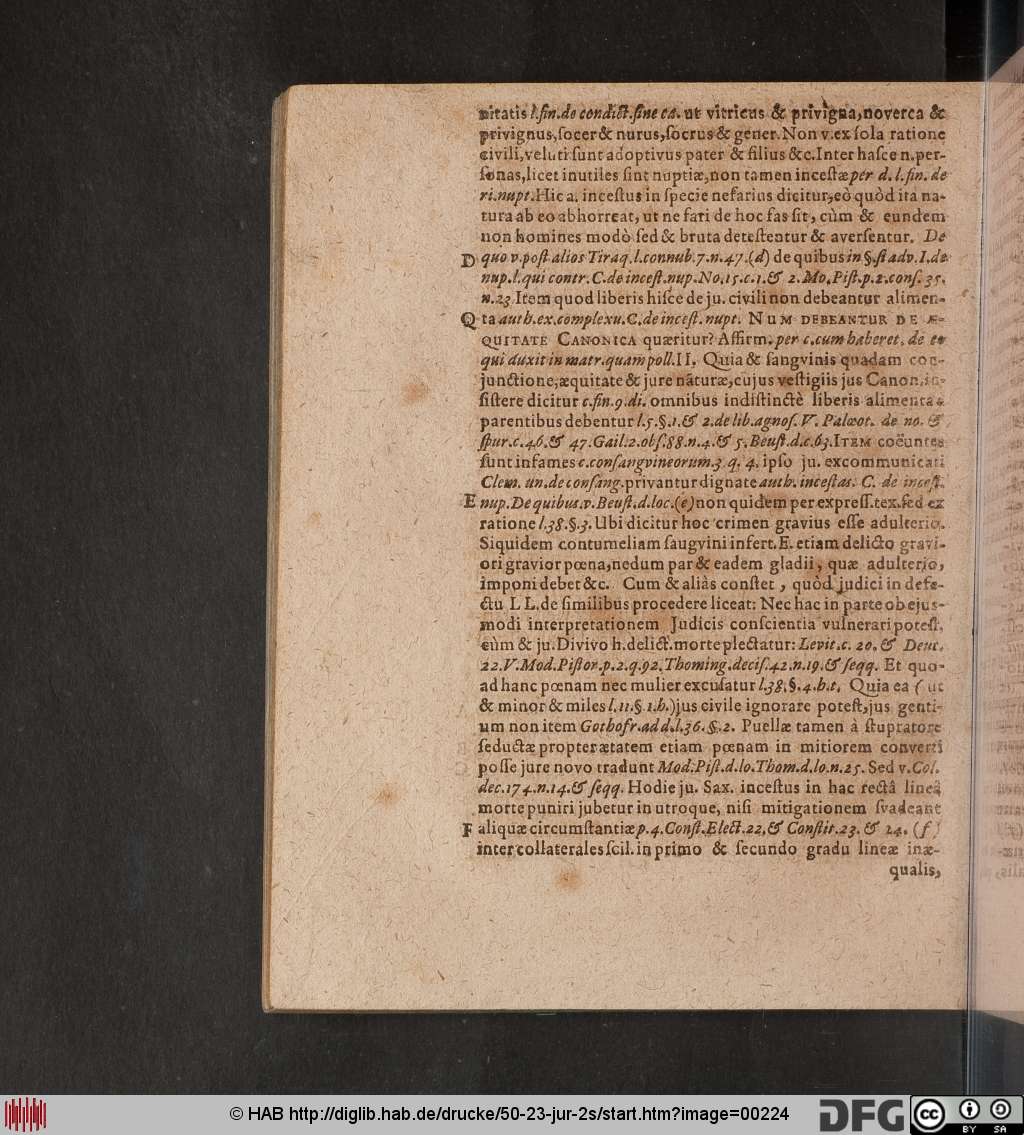 nitatis l.fin.de condict.sine ca. ut vitricus & privigna, noverca &
privignus, socer & nurus, socrus & gener. Non v. ex sola ratione
civili, veluti sunt adoptivus pater & filius &c. Inter hasce n. per-
sonas, licet inutiles sint nuptiæ, non tamen incestæ per d. l. fin. de
ri. nupt. Hic a. incestus in specie nefarius dicitur, eò quòd ita na-
tura ab eo abhorreat, ut ne fari de hoc fas sit, cùm & eundem
non homines modò sed & bruta detestentur & aversentur. De
D quo v. post alios Tiraq. l. connub. 7. n. 47. (d) de quibus in §. si adv. I. de
nup. l. qui contr. C. de incest. nup. No. 15. c. 1. & 2. Mo. Pist. p. 2. cons. 35.
n. 23 Item quod liberis hisce de ju. civili non debeantur alimen-
Q ta auth. ex. complexu. C. de incest. nupt. NUM DEBEANTUR DE Æ-
QUITATE CANONICA quæritur? Affirm. per c. cum haberet. de eo
qui duxit in matr. quam poll. II. Quia & sangvinis quadam con-
junctione, æquitate & jure naturæ, cujus vestigiis jus Canon. in-
sistere dicitur c. fin. 9. di. omnibus indistinctè liberis alimenta a
parentibus debentur l. 5. §. 1. & 2. de lib. agnos. V. Palæot. de no. &
spur. c. 46. & 47. Gail. 2. obs. 88. n. 4. & 5. Beust. d. c. 63. ITEM coëuntes
sunt infames c. consangvineorum. 3. q. 4. ipso ju. excommunicati
Clem. un. de consang. privantur dignate auth. incestas. C. de incest.
E nup. De quibus. v. Beust. d. loc. (e) non quidem per express. tex. sed ex
ratione l. 38. §. 3. Ubi dicitur hoc crimen gravius esse adulterio.
Siquidem contumeliam saugvini infert. E. etiam delicto gravi-
ori gravior pœna, nedum par & eadem gladii, quæ adulterio,
imponi debet &c. Cum & aliàs constet, quòd judici in defe-
ctu L L. de similibus procedere liceat: Nec hac in parte ob ejus-
modi interpretationem Judicis conscientia vulnerari potest,
cùm & ju. Divivo h. delict. morte plectatur: Levit. c. 20. & Deut.
22. V. Mod. Pistor. p. 2. q. 92. Thoming. decis. 42. n. 19. & seqq. Et quo-
ad hanc pœnam nec mulier excusatur l. 38. §. 4. h. t. Quia ea ( ut
& minor & miles l. 11. §. 1. h. ) jus civile ignorare potest, jus genti-
um non item Gothofr. ad d. l. 36. §. 2. Puellæ tamen à stupratore
seductæ propter ætatem etiam pœnam in mitiorem converti
posse jure novo tradunt Mod. Pist. d. lo. Thom. d. lo. n. 25. Sed v. Col.
dec. 174. n. 14. & seqq. Hodie ju. Sax. incestus in hac rectâ lineâ
morte puniri jubetur in utroque, nisi mitigationem svadeant
F aliquæ circumstantiæ p. 4. Const. Elect. 22. & Constit. 23. & 24. (f)
inter collaterales scil. in primo & secundo gradu lineæ inæ-
qualis,
© HAB http://diglib.hab.de/drucke/50-23-jur-2s/start.htm?image=00224
DFG
cc BY SA